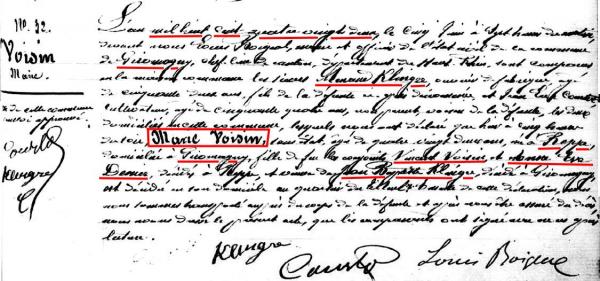 No. 32.
Voisin
Marie.
L'an mil huit cent quatre vingt deux, le cinq Juin à sept heures du matin,
devant nous Louis Boigeol, maire et officier de l'état civil de la commune
de Giromagny, chef lieu de canton, département du Haut-Rhin, sont comparus
en la maison commune les sieurs Klingre, ouvrier de fabrique, âgé
de cinquante deux ans, fils de la défunte et Jean Courtot
cultivateur, âgé de cinquante quatre ans, voisin de la défunte, les deux
domiciliés en cette commune, lesquels nous ont déclaré que hier cinq heures
du soir Marie Voisin, sans état, âgée de quatre vingt deux ans, née à Reppe,
domiciliée à Giromagny, fille de feu les conjoints Vincent Voisin et Anne Eve
Demeu, décédés à Reppe, et veuve de Jean Baptiste Klingre décédé à Giromagny,
est décédée en son domicile au quartier de
nous sommes transporté auprès du corps de la défunte et après nous être assuré du décès
nous avons dressé le présent acte, que les comparants ont signé avec nous après
lecture.
* de cette commune
mot approuvé
Courtot
Klingre
Klingre
Courtot
Louis Boigeol